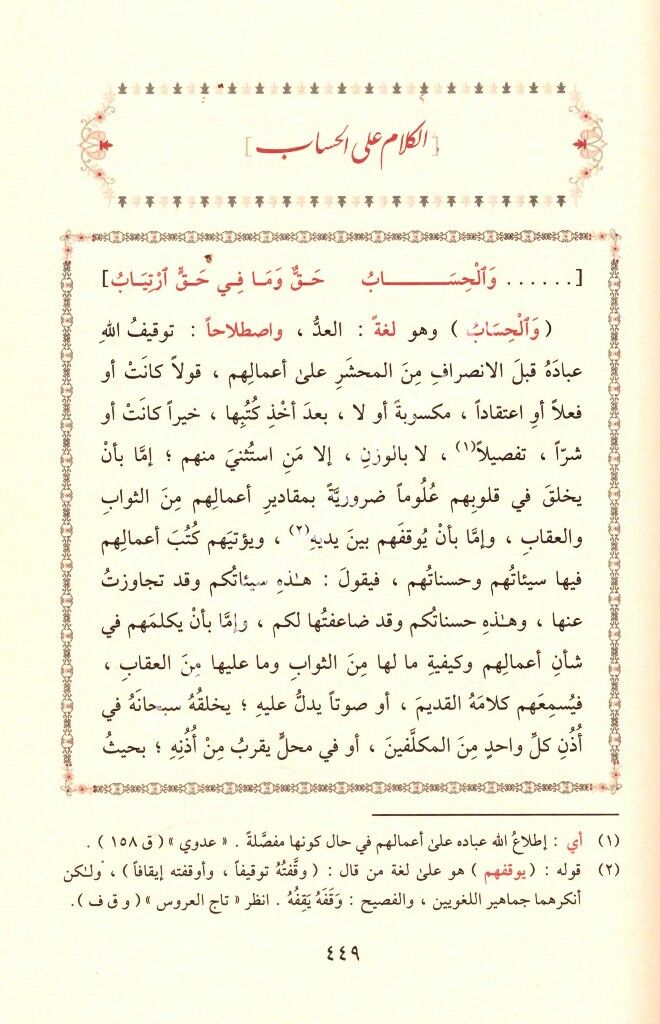 [الكلام على الحساب]
[...... وَٱلْحِسَـــــــابُ حَـقٌّ وَمَـا فِـي حَـقٍّ ٱرْتِيَـابُ]
( وَٱلْحِسَابُ ) وهو لغةً : العدُّ ، واصطلاحاً : توقيفُ اللهِ
عبادَهُ قبلَ الانصرافِ مِنَ المحشَرِ علىٰ أعمالِهم ، قولاً كانَتْ أو
فعلاً أوِ اعتقاداً ، مكسوبةً أو لا ، بعدَ أخْذِ كُتُبِها ، خيراً كانَتْ أو
شرّاً ، تفصيلاً(١) ، لا بالوزنِ ، إلا مَنِ استُثنيَ منهم ؛ إمَّا بأنْ
يخلقَ في قلوبِهم عُلُوماً ضروريَّةً بمقاديرِ أعمالِهم مِنَ الثوابِ
والعقابِ ، وإمَّا بأنْ يُوقفَهم بينَ يديهِ(٢) ، ويؤتيَهم كُتُبَ أعمالِهم
فيها سيئاتُهم وحسناتُهم ، فيقولَ : هـٰذهِ سيئاتُكم وقد تجاوزتُ
عنها ، وهـٰذهِ حسناتُكم وقد ضاعفتُها لكم ، وإمَّا بأنْ يكلمَهم في
شأنِ أعمالِهم وكيفيةِ ما لها مِنَ الثوابِ وما عليها مِنَ العقابِ ،
فيُسمِعَهم كلامَهُ القديمَ ، أو صوتاً يدلُّ عليهِ ؛ يخلقُهُ سبحانَهُ في
أُذُنِ كلِّ واحدٍ مِنَ المكلَّفينَ ، أو في محلٍّ يقربُ مِنْ أُذُنِهِ ؛ بحيثُ
(١) أي : إطلاعُ الله عباده علىٰ أعمالهم في حال كونها مفصَّلة . « عدوي » ( ق ١٥٨ ) .
(٢) قوله : ( يوقفهم ) هو علىٰ لغة من قال : ( وقَّفتُهُ توقيفاً ، وأوقفته إيقافاً ) ، ولـٰكن
أنكرهما جماهير اللغويين ، والفصيح : وَقَفَهُ يَقِفُهُ . انظر « تاج العروس » ( و ق ف ) .
٤٤٩